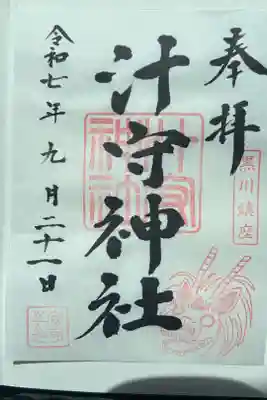 奉拝
黒川鎮座
汁守神社
汁守神社
令和七年九月二十一日